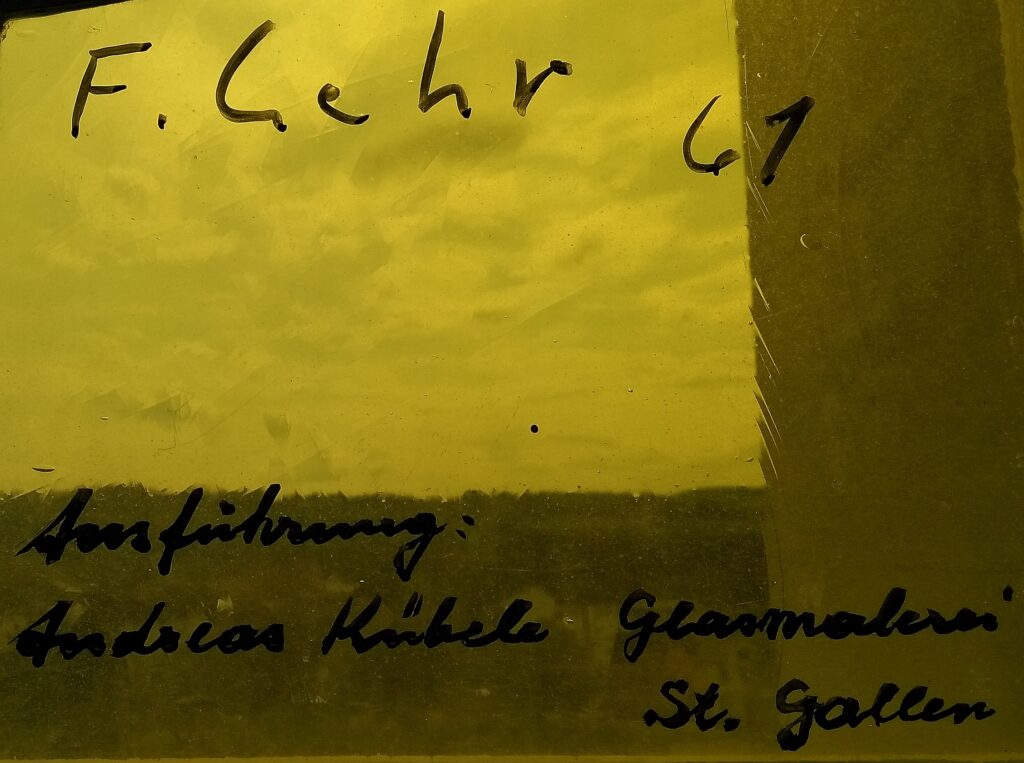 F. Gehr 61
Ausführung:
Andreas Kübele Glasmalerei
St. Gallen